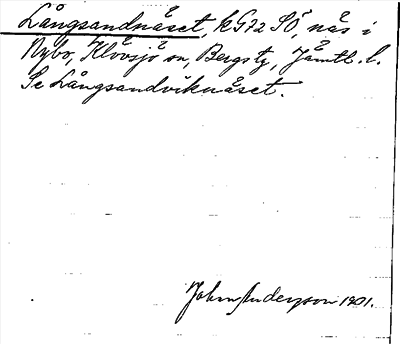 Långsandnäset, kG72 SÖ, näs i
Nybo, Klövsjö sn, Bergs tg, Jämtl. l.
Se Långsandviknäset.
John Anderson 1901.